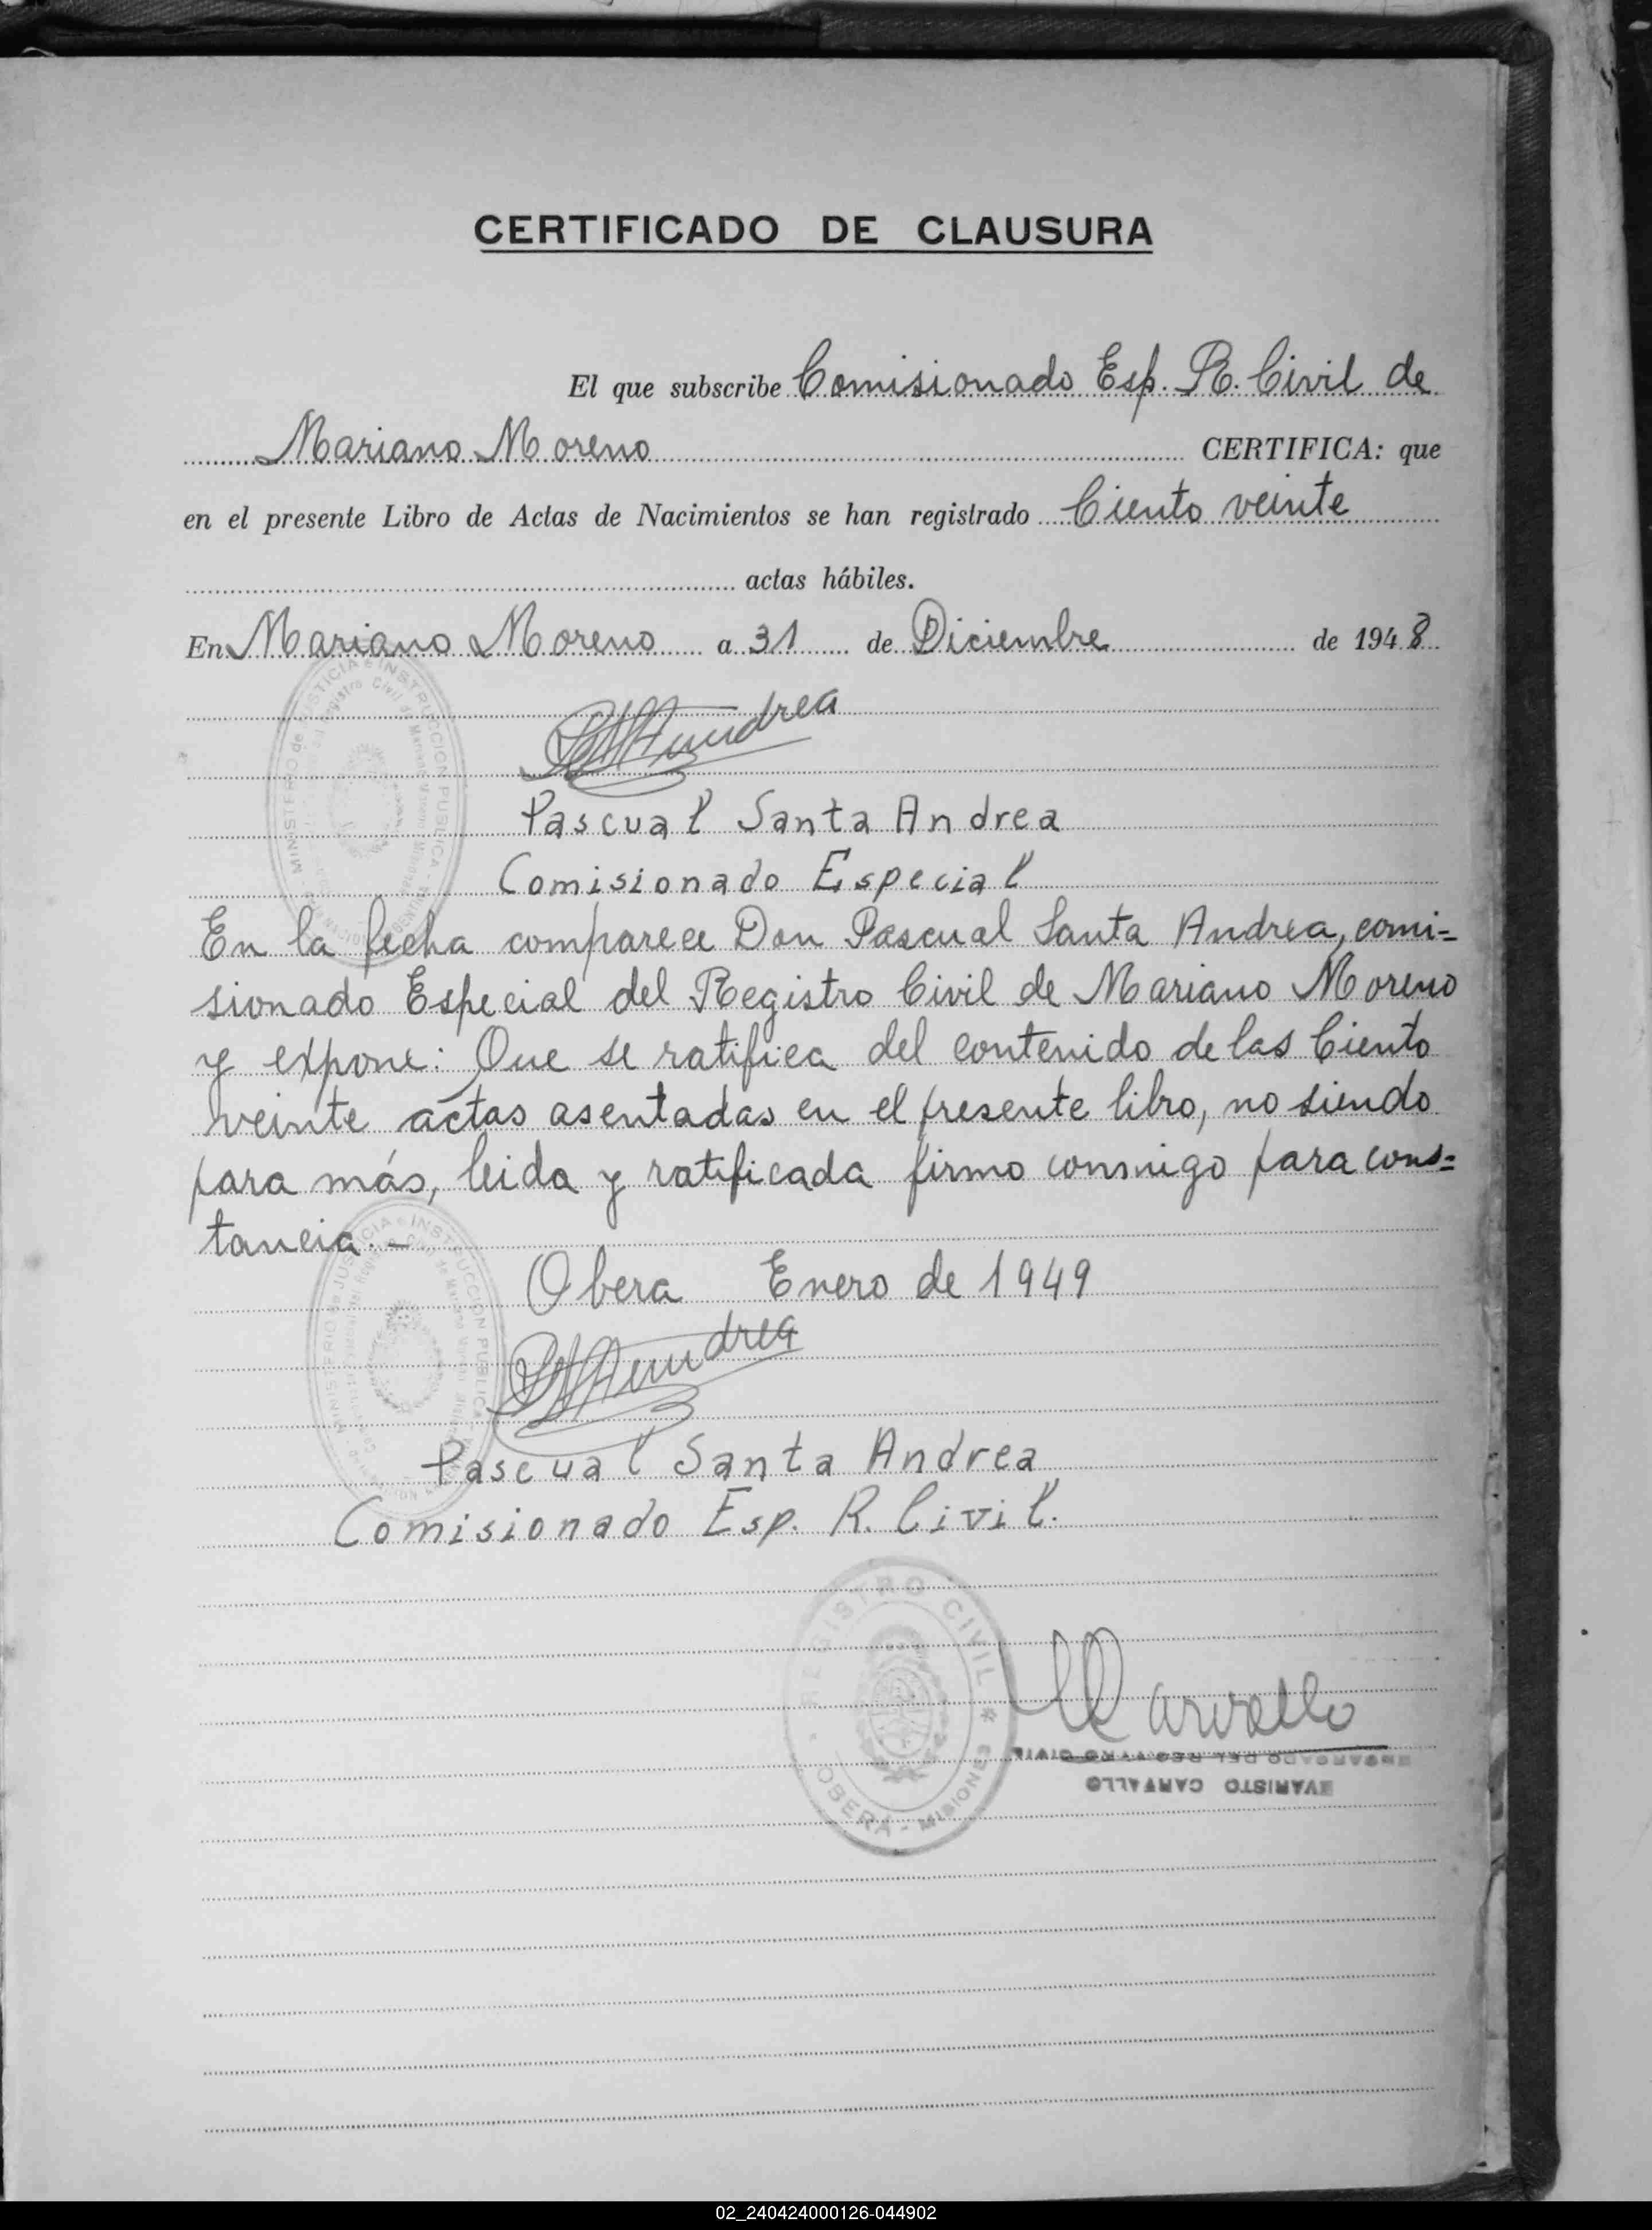 CERTIFICADO DE CLAUSURA
El que subscribe Comisionado Esp. R. Civil de
Mariano Moreno CERTIFICA: que
en el presente Libro de Actas de Nacimientos se han registrado Ciento veinte
actas hábiles.
En Mariano Moreno a 31 de Diciembre de 1948
Pascual Santa Andrea
Comisionado Especial
En la fecha comparece Don Pascual Santa Andrea, comi=
sionado Especial del Registro Civil de Mariano Moreno
y expone: Que se ratifica del contenido de las Ciento
veinte actas asentadas en el presente libro, no siendo
para más, leida y ratificada firmo conmigo para cons=
tancia.-
Obera Enero de 1949
Pascual Santa Andrea
Comisionado Esp. R. Civil.
REGISTRO CIVIL
OBERÁ - MISIONES
Carvallo
ENCARGADO DEL REGISTRO CIVIL
EVARISTO CARVALLO
MINISTERIO de JUSTICIA e INSTRUCCION PUBLICA
MINISTERIO de JUSTICIA e INSTRUCCION PUBLICA
02_240424000126-044902